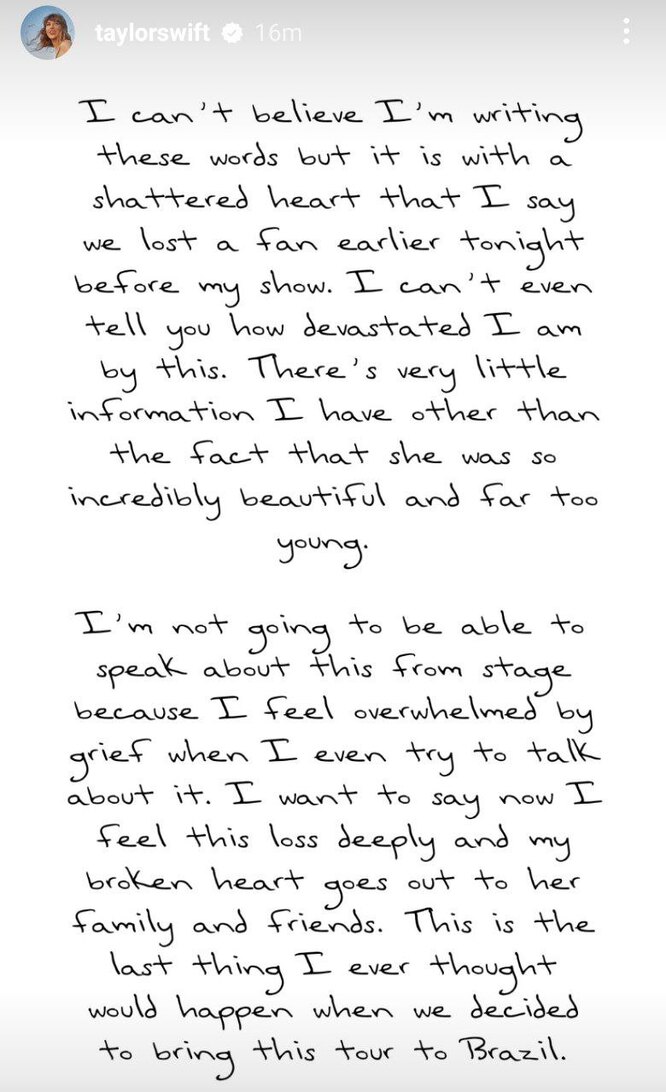 taylorswift 16m
I can't believe I'm writing
these words but it is with a
shattered heart that I say
we lost a fan earlier tonight
before my show. I can't even
tell you how devastated I am
by this. There's very little
information I have other than
the fact that she was so
incredibly beautiful and far too
young.
I'm not going to be able to
speak about this from stage
because I feel overwhelmed by
grief when I even try to talk
about it. I want to say now I
feel this loss deeply and my
broken heart goes out to her
family and friends. This is the
last thing I ever thought
would happen when we decided
to bring this tour to Brazil.